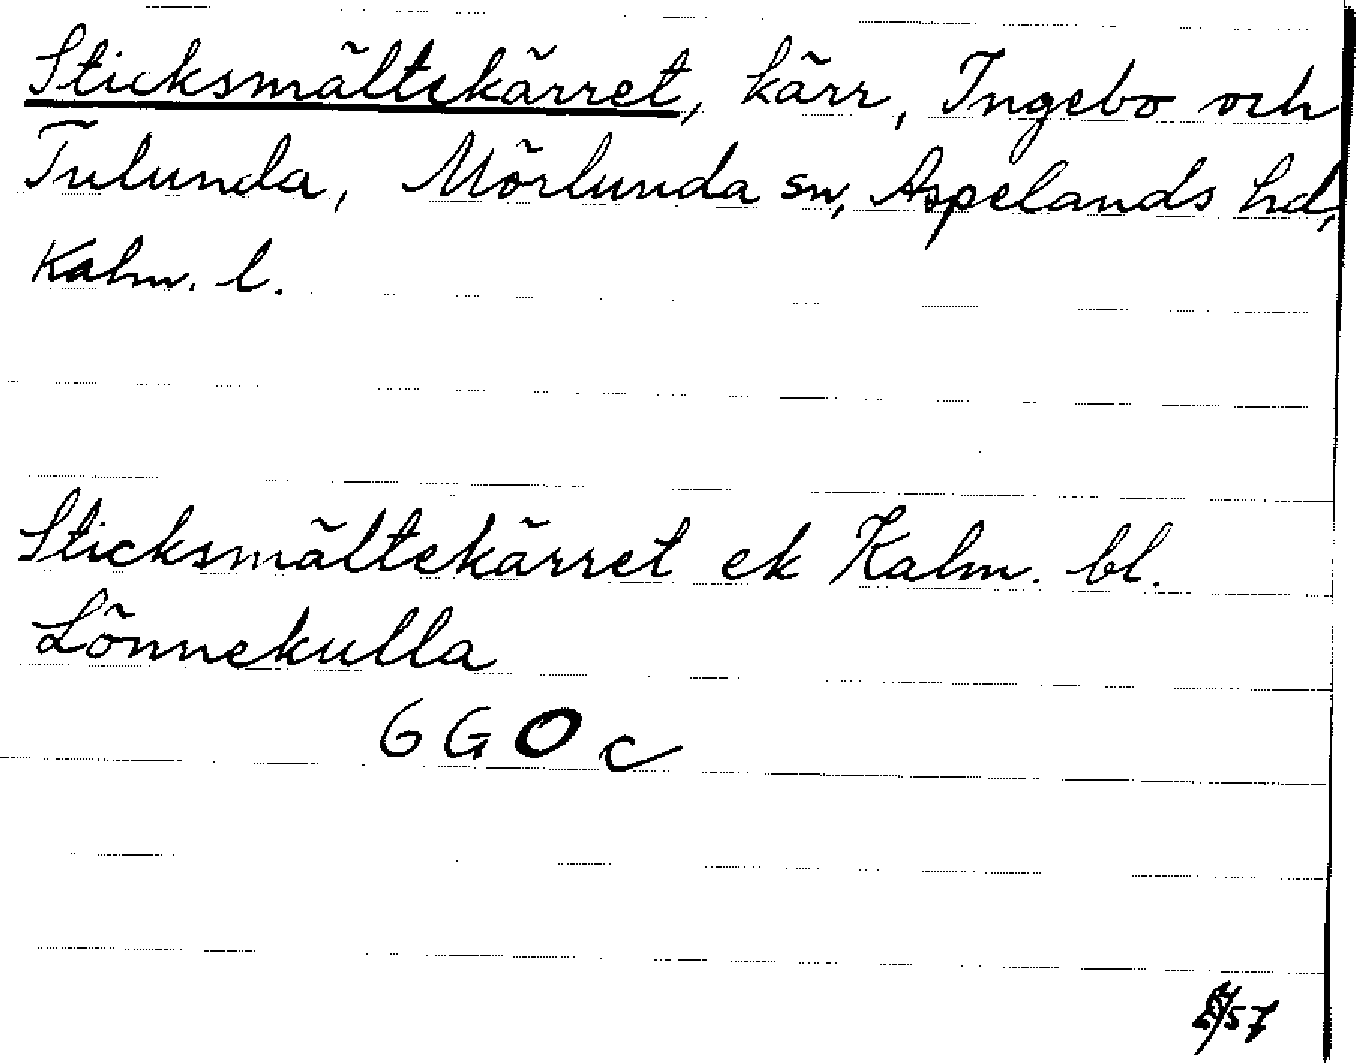 Sticksmältekärret, kärr, Ingebo och
Tulunda, Mörlunda sn, Aspelands hd,
Kalm. l.
Sticksmältekärret ek Kalm. bl.
Lönnekulla
6 G O c